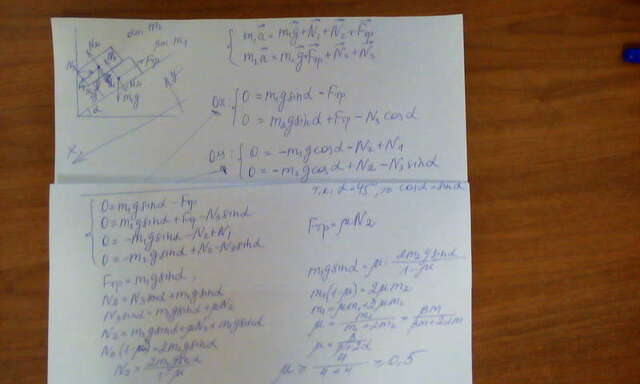 αm m₂
βm m₁
Fтр
m₁g
α
y
x
m₁a⃗ = m₁g⃗ + N⃗₁ + N⃗₂ + F⃗тр
m₂a⃗ = m₂g⃗ + F⃗тр + N⃗₂ + N⃗₃
Ox: 0 = m₁gsinα − Fтр
0 = m₂gsinα + Fтр − N₃cosα
Oy: 0 = −m₁gcosα − N₂ + N₁
0 = −m₂gcosα + N₂ − N₃sinα
т.к. α = 45°, то cosα = sinα
0 = m₁gsinα − Fтр
0 = m₂gsinα + Fтр − N₃sinα
0 = −m₁gsinα − N₂ + N₁
0 = −m₂gsinα + N₂ − N₃sinα
Fтр = m₁gsinα
N₂ = N₃sinα + m₂gsinα
N₃sinα = m₂gsinα + μN₂
N₂ = m₂gsinα + μN₂ + m₂gsinα
N₂(1−μ) = 2m₂gsinα
N₂ = 2m₂gsinα / 1−μ
Fтр = μN₂
m₁gsinα = μ · 2m₂gsinα / 1−μ
m₁(1−μ) = 2μm₂
m₁ = μm₁ + 2μm₂
μ = m₁ / m₁+2m₂ = βm / βm+2αm
μ = β / β+2α
μ = 4 / 4+4 = 0,5